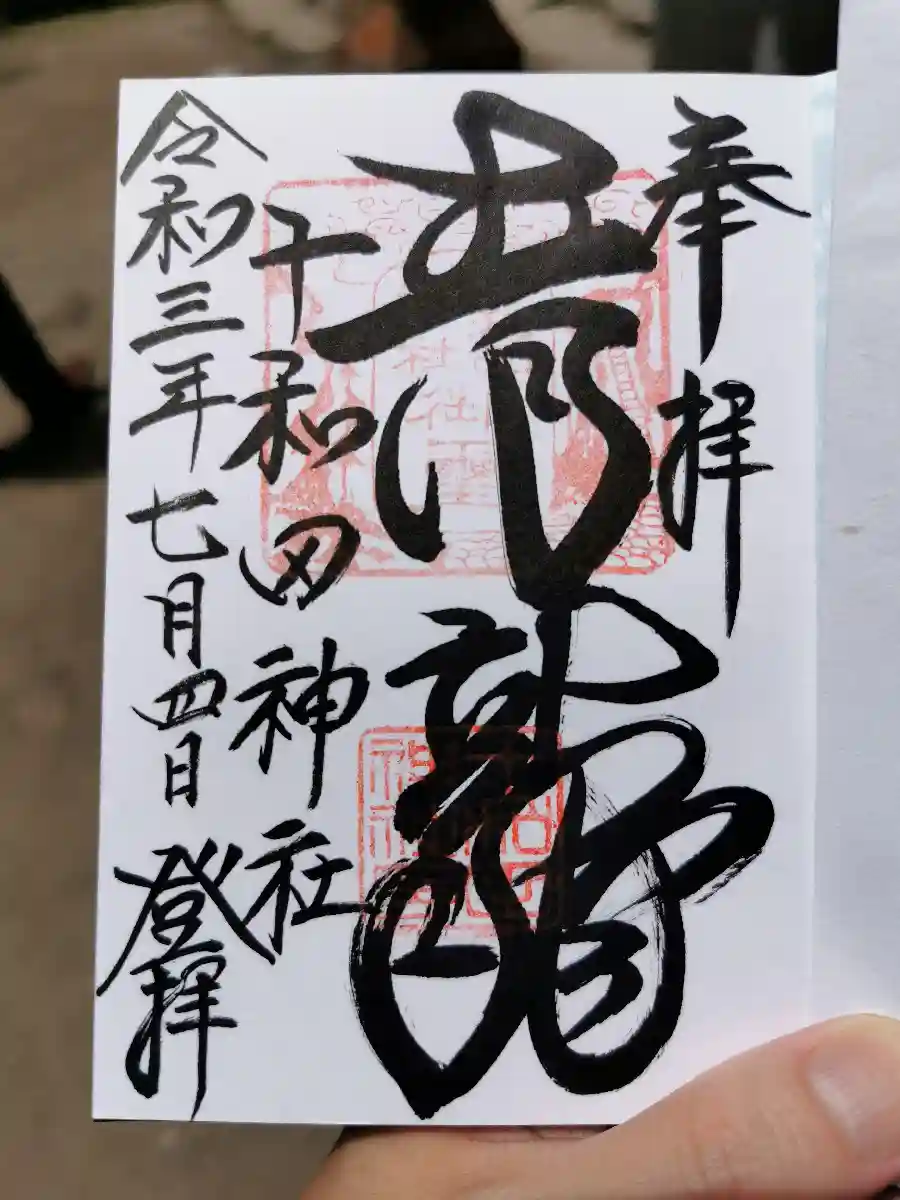 奉拝
青龍
十和田神社
令和三年七月四日 登拝